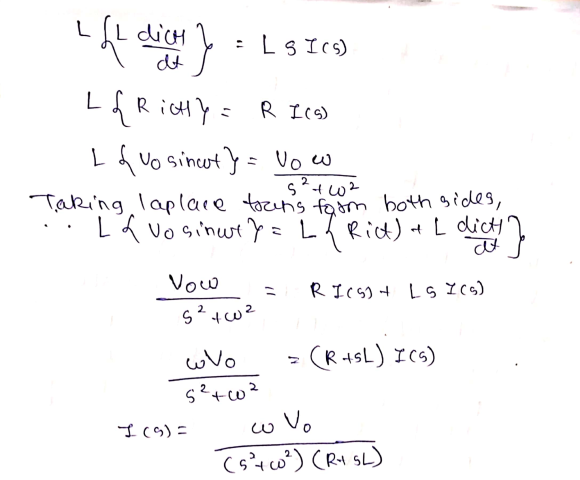 L { L di(t)/dt } = L s I(s)
L { R i(t) } = R I(s)
L { V0 sinωt } = V0 ω / s²+ω²
Taking laplace transform both sides,
∴ L { V0 sinωt } = L { R i(t) + L di(t)/dt }
V0ω / s²+ω² = R I(s) + L s I(s)
ωV0 / s²+ω² = (R+sL) I(s)
I(s) = ω V0 / (s²+ω²) (R+sL)